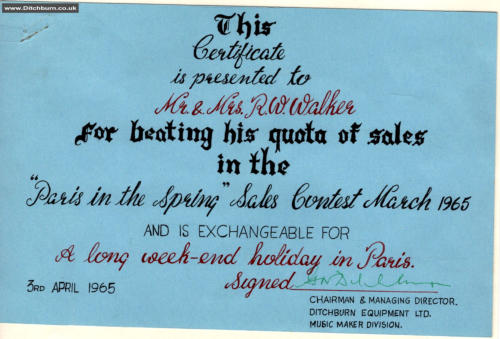 www.Ditchburn.co.uk
This
Certificate
is presented to
Mr. & Mrs. R.W. Walker
For beating his quota of sales
in the
"Paris in the Spring" Sales Contest March 1965
AND IS EXCHANGEABLE FOR
A long week-end holiday in Paris.
Signed
3RD APRIL 1965
CHAIRMAN & MANAGING DIRECTOR.
DITCHBURN EQUIPMENT LTD.
MUSIC MAKER DIVISION.